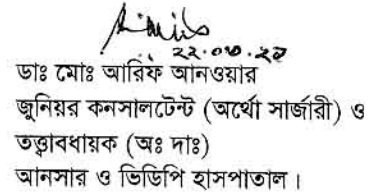 ডাঃ মোঃ আরিফ আনওয়ার
জুনিয়র কনসালটেন্ট (অর্থো সার্জারী) ও
তত্ত্বাবধায়ক (অঃ দাঃ)
আনসার ও ভিডিপি হাসপাতাল।